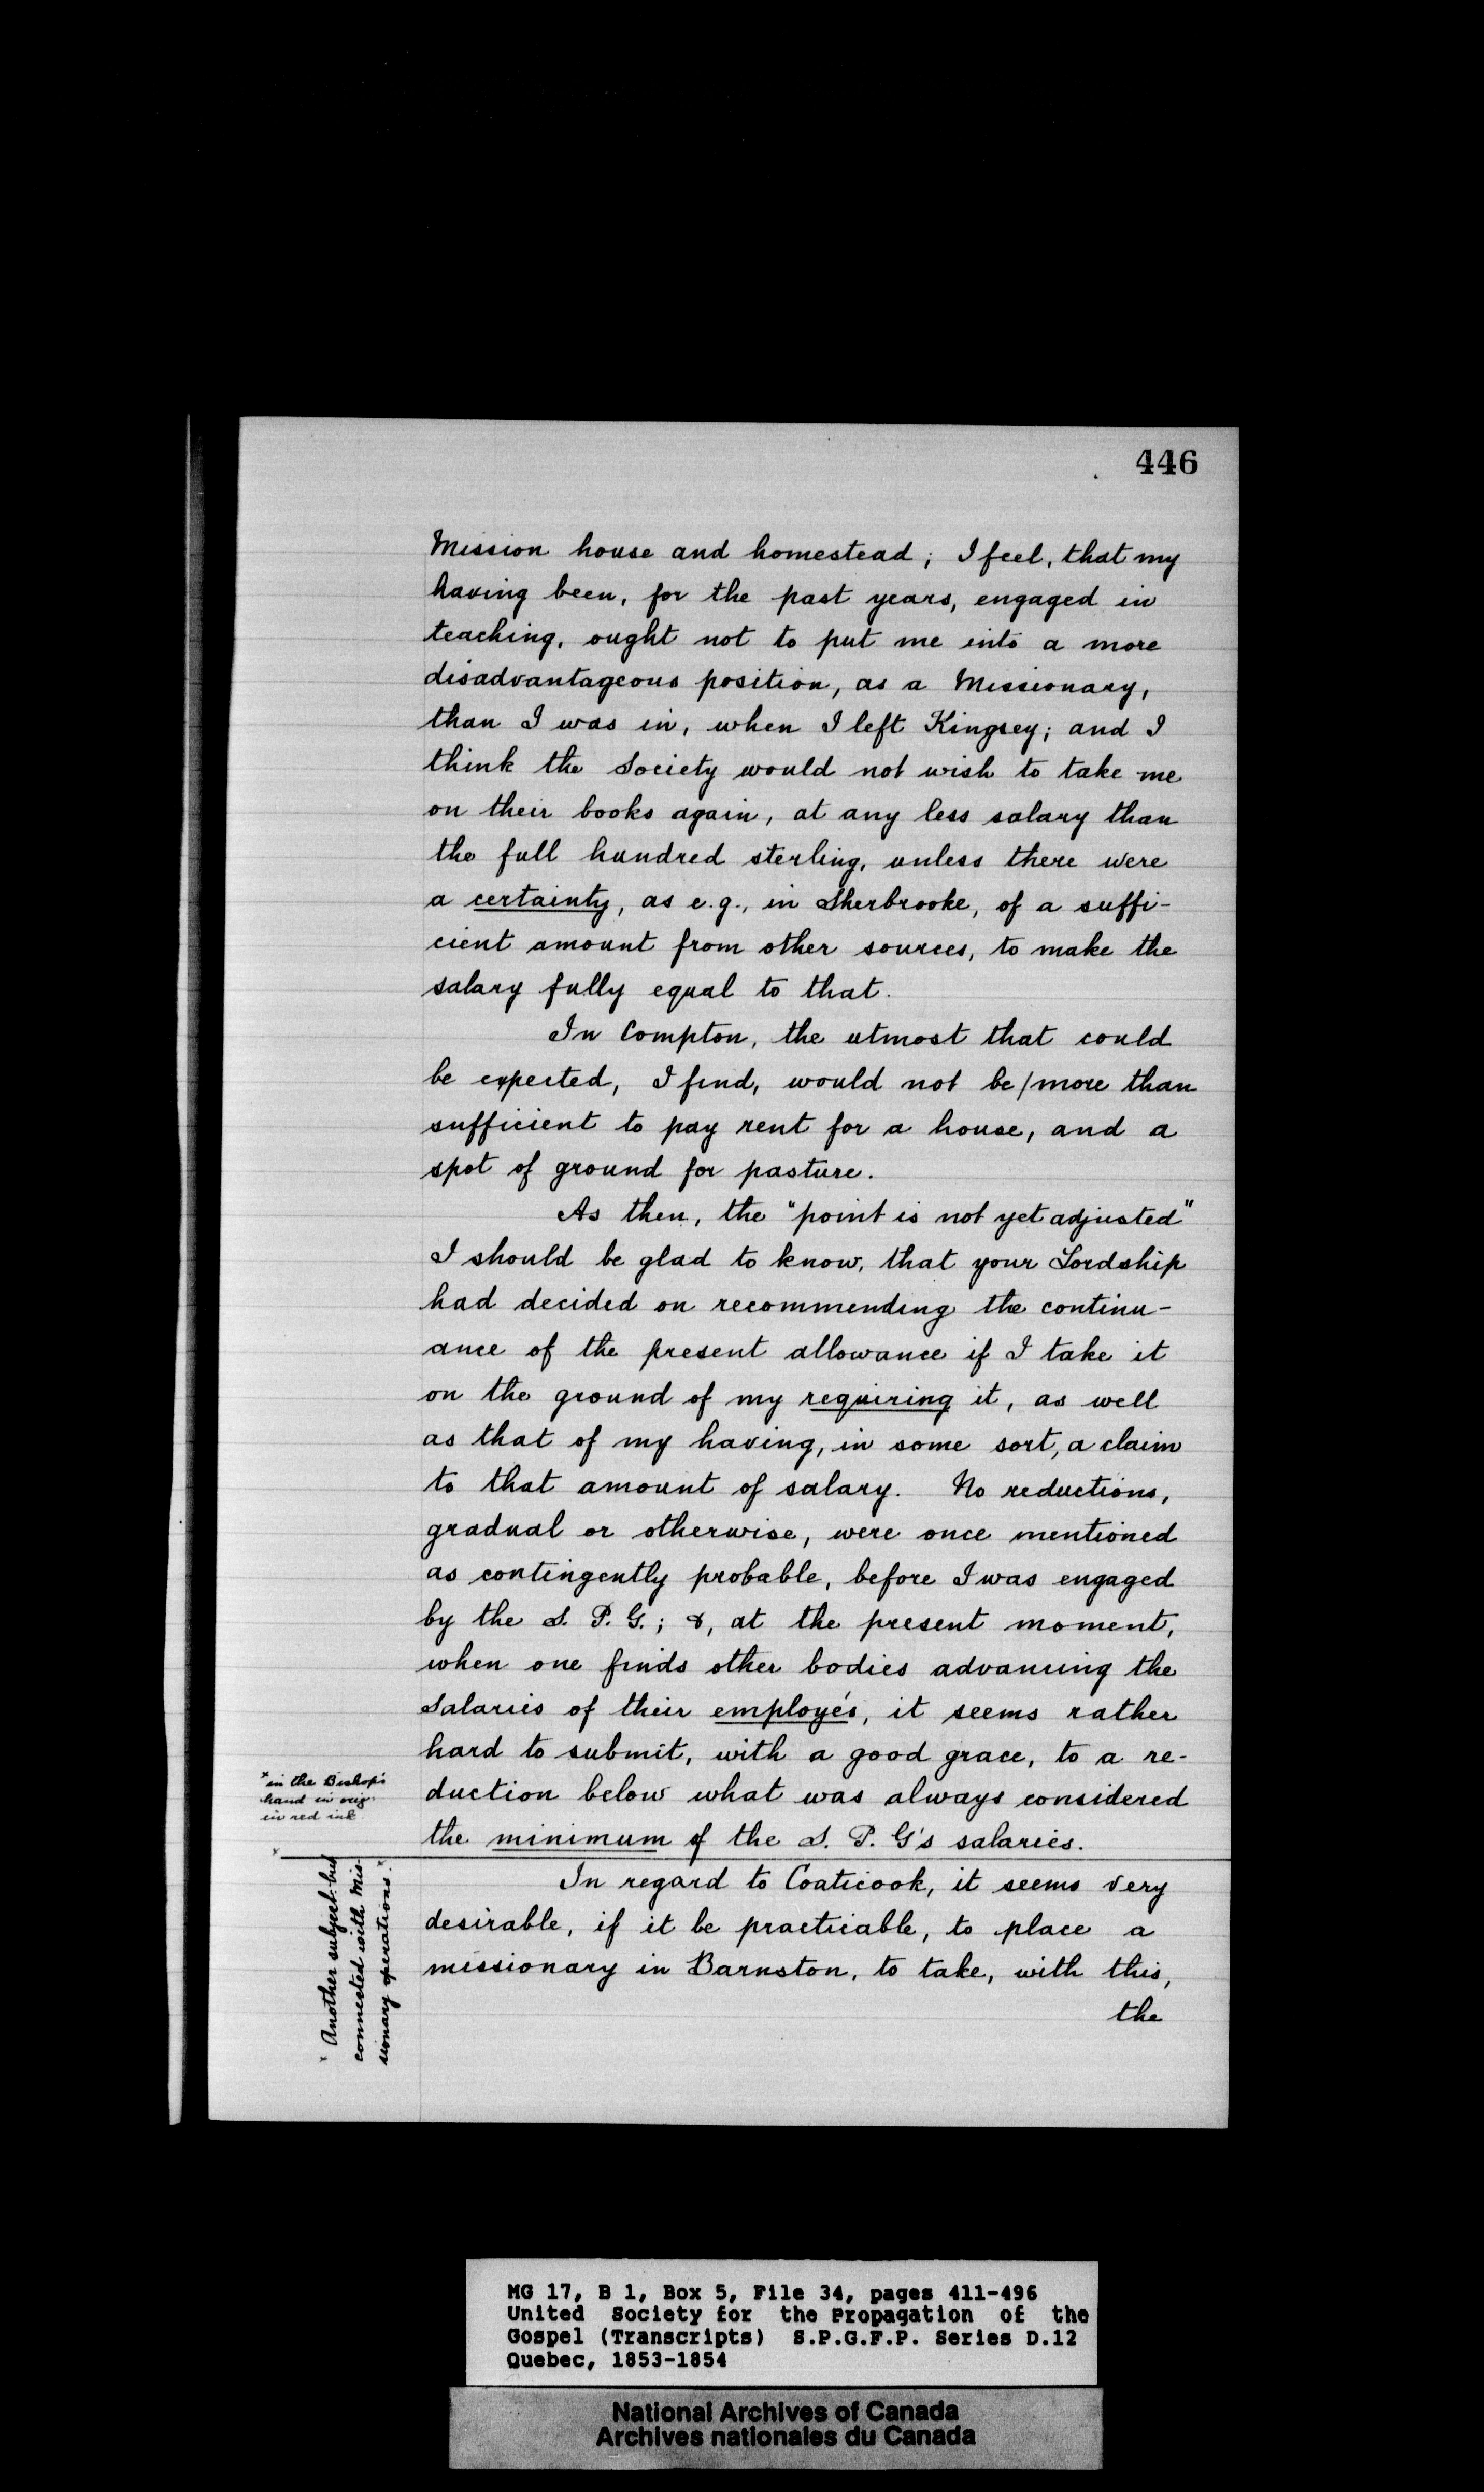 446
Mission house and homestead; I feel, that my
having been, for the past years, engaged in
teaching, ought not to put me into a more
disadvantageous position, as a Missionary,
than I was in, when I left Kingsey; and I
think the Society would not wish to take me
on their books again, at any less salary than
the full hundred sterling, unless there were
a certainty, as e.g., in Sherbrooke, of a suffi-
cient amount from other sources, to make the
salary fully equal to that.
In Compton, the utmost that could
be expected, I find, would not be/more than
sufficient to pay rent for a house, and a
spot of ground for pasture.
As then, the "point is not yet adjusted"
I should be glad to know, that your Lordship
had decided on recommending the continu-
ance of the present allowance if I take it
on the ground of my requiring it, as well
as that of my having, in some sort, a claim
to that amount of salary. No reductions,
gradual or otherwise, were once mentioned
as contingently probable, before I was engaged
by the S. P. G.; &, at the present moment,
when one finds other bodies advancing the
Salaries of their employés, it seems rather
hard to submit, with a good grace, to a re-
duction below what was always considered
the minimum of the S. P. G's salaries.
x in the Bishop's
hand in orig.
in red ink
x Another subject but
connected with Mis-
sionary operations. x
In regard to Coaticook, it seems very
desirable, if it be practicable, to place a
missionary in Barnston, to take, with this,
the
MG 17, B 1, Box 5, File 34, pages 411-496
United Society for the Propagation of the
Gospel (Transcripts) S.P.G.F.P. Series D.12
Quebec, 1853-1854
National Archives of Canada
Archives nationales du Canada